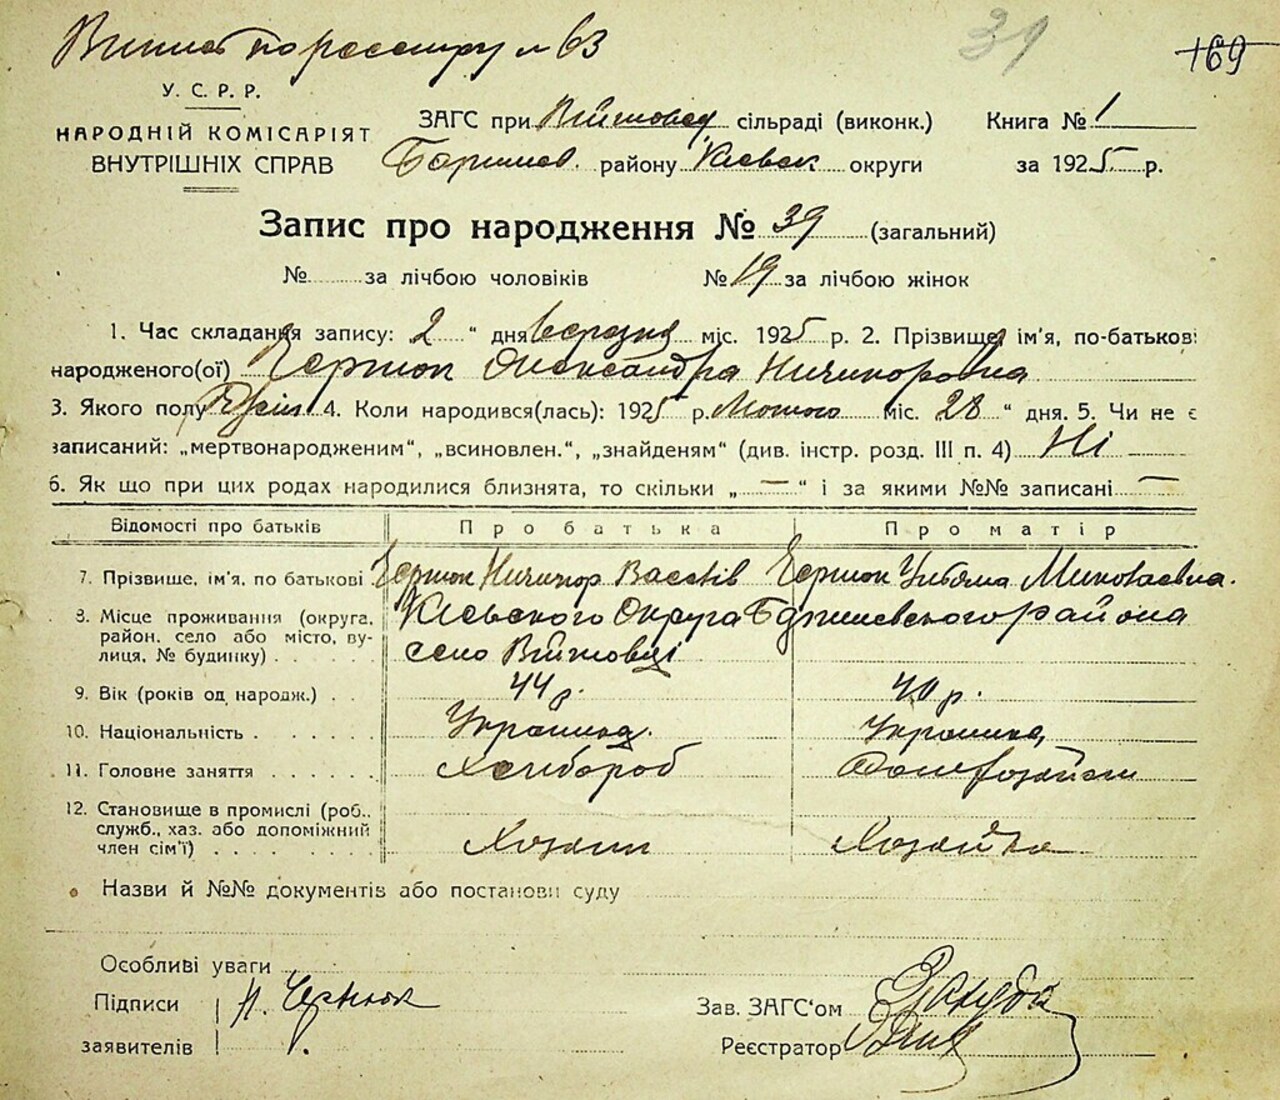 по реестру № 63
39
169
У. С. Р. Р.
НАРОДНІЙ КОМІСАРІЯТ
ВНУТРІШНІХ СПРАВ
ЗАГС при Війтовец. сільраді (виконк.) Книга № 1
Баришев. району Київськ округи за 1925 р.
Запис про народження № 39 (загальний)
№ за лічбою чоловіків № 19 за лічбою жінок
1. Час складання запису: 2 " дня березня міс. 1925 р. 2. Прізвище, ім'я, по-батькові
народженого(ої) Чернюк Олександра Ничипоровна
3. Якого полу 4. Коли народився(лась): 1925 р. Лютого міс. 28 " дня. 5. Чи не є
записаний: „мертвонародженим“, „всиновлен.“, „знайденям“ (див. інстр. розд. III п. 4) Ні
6. Як що при цих родах народилися близнята, то скільки „ — “ і за якими №№ записані —
Відомості про батьків Про батька Про матір
7. Прізвище, ім'я, по батькові Чернюк Ничипор Васил'ів Чернюк Уліяна Миколаевна.
8. Місце проживання (округа, Київського Округа Баришевського района
район, село або місто, ву- село Війтовці
лиця, № будинку)
9. Вік (років од народж.) 44 р. 40 р.
10. Національність Українец. Українка
11. Головне заняття Хлібороб
12. Становище в промислі (роб.,
служб., хаз. або допоміжний
член сім'ї) Хозаин Хозяйка
Назви й №№ документів або постанови суду
Особливі уваги
Підписи Н. Чернюк Зав. ЗАГС'ом
заявителів Реєстратор